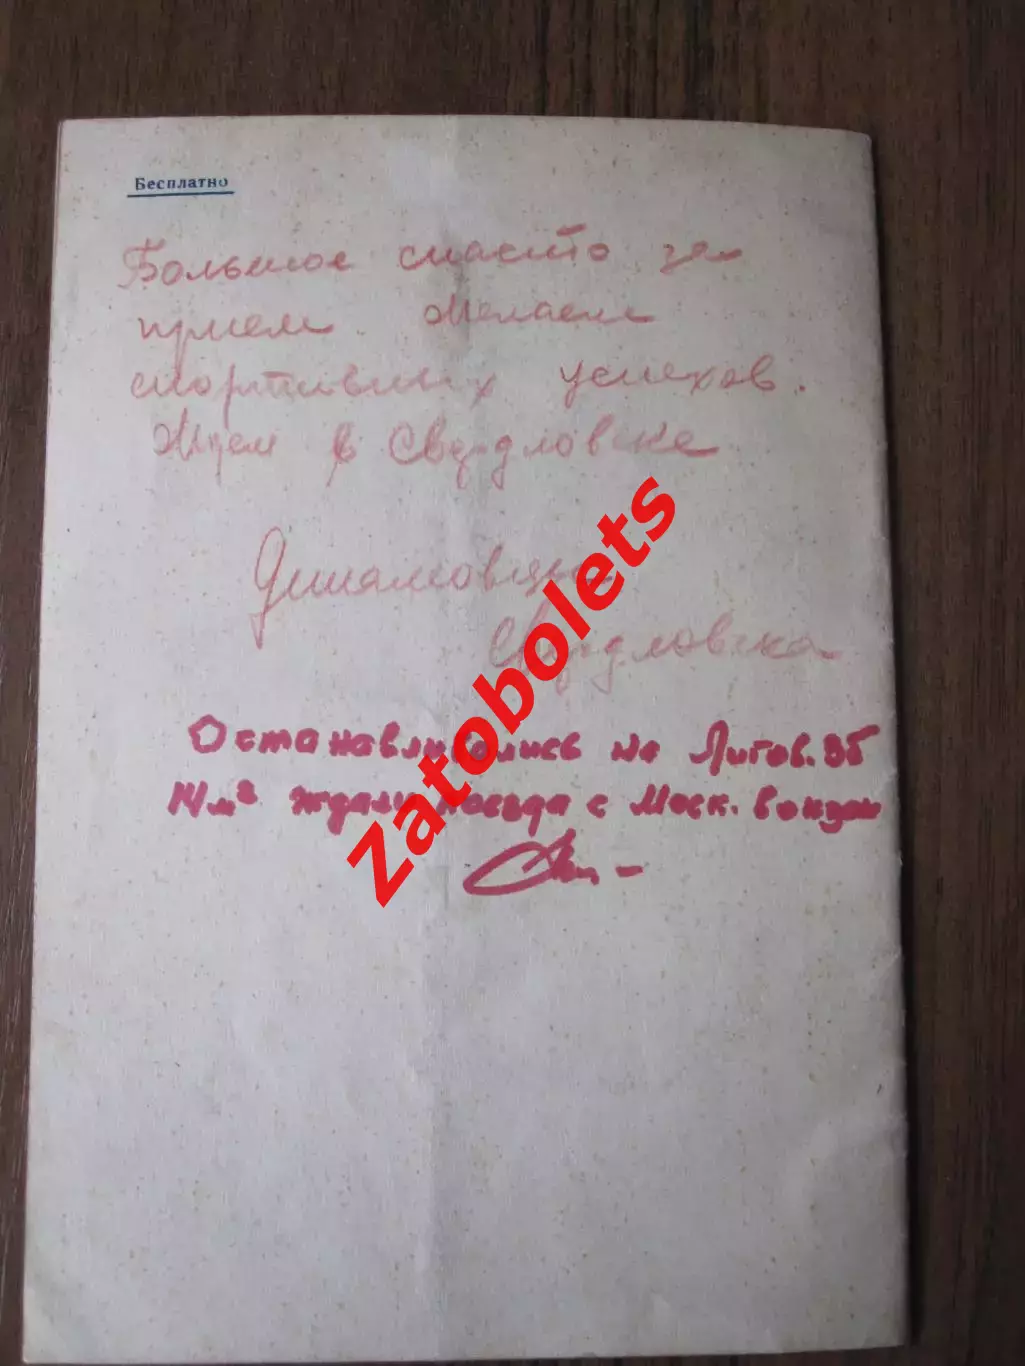 Бесплатно
Большое спасибо за
прием. Желаем
спортивных успехов.
Ждем в Свердловске
Динамовцы
Свердловска
Останавливались на Лигов. 35
14 м² ждали поезда с Моск. вокзала
Zatobolets